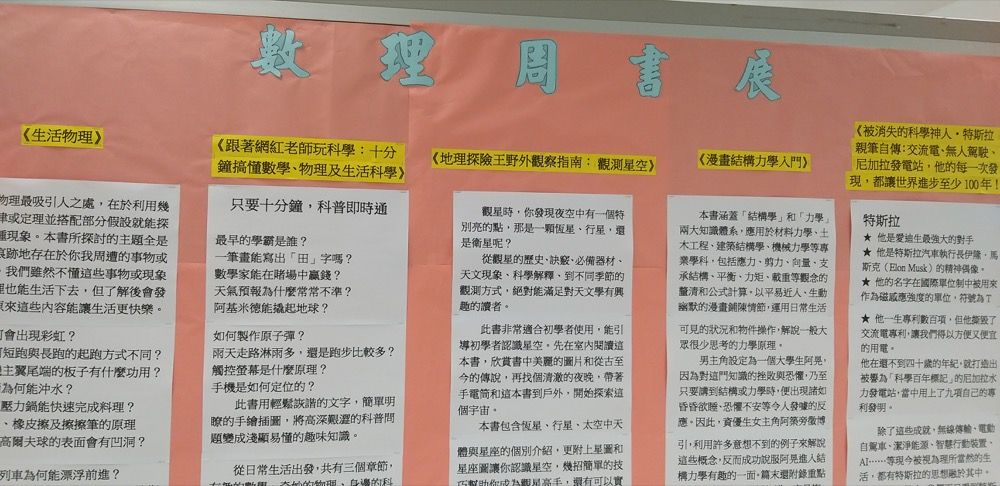 數理周書展
《生活物理》
物理最吸引人之處，在於利用幾
律或定理並搭配部分假設就能探
種現象。本書所探討的主題全是
痕跡地存在於你我周遭的事物或
，我們雖然不懂這些事物或現象
理也能生活下去，但了解後會發
原來這些內容能讓生活更快樂。
何會出現彩虹？
短跑與長跑的起跑方式不同？
主翼尾端的板子有什麼功用？
為何能沖水？
壓力鍋能快速完成料理？
、橡皮擦及擦擦筆的原理
高爾夫球的表面會有凹洞？
列車為何能漂浮前進？
《跟著網紅老師玩科學：十分
鐘搞懂數學、物理及生活科學》
只要十分鐘，科普即時通
最早的學霸是誰？
一筆畫能寫出「田」字嗎？
數學家能在賭場中贏錢？
天氣預報為什麼常常不準？
阿基米德能撬起地球？
如何製作原子彈？
雨天走路淋雨多，還是跑步比較多？
觸控螢幕是什麼原理？
手機是如何定位的？
此書用輕鬆詼諧的文字，簡單明
瞭的手繪插圖，將高深艱澀的科普問
題變成淺顯易懂的趣味知識。
從日常生活出發，共有三個章節，
有趣的數學、奇妙的物理、身邊的科
《地理探險王野外觀察指南： 觀測星空》
觀星時，你發現夜空中有一個特
別亮的點，那是一顆恆星、行星，還
是衛星呢？
從觀星的歷史、訣竅、必備器材、
天文現象、科學解釋、到不同季節的
觀測方式，絕對能滿足對天文學有興
趣的讀者。
此書非常適合初學者使用，能引
導初學者認識星空。先在室內閱讀這
本書，欣賞書中美麗的圖片和從古至
今的傳說，再找個清澈的夜晚，帶著
手電筒和這本書到戶外，開始探索這
個宇宙。
本書包含恆星、行星、太空中天
體與星座的個別介紹，更附上星圖和
星座圖讓你認識星空，幾招簡單的技
巧幫助你成為觀星高手，還有可以實
《漫畫結構力學入門》
本書涵蓋「結構學」和「力學」
兩大知識體系，應用於材料力學、土
木工程、建築結構學、機械力學等專
業學科，包括應力、剪力、向量、支
承結構、平衡、力矩、載重等觀念的
釐清和公式計算。以平易近人、生動
幽默的漫畫鋪陳情節，運用日常生活
可見的狀況和物件操作，解說一般大
眾很少思考的力學原理。
男主角設定為一個大學生阿晃，
因為對這門知識的挫敗與恐懼，乃至
只要講到結構或力學時，便出現諸如
昏昏欲睡、恐懼不安等令人發噱的反
應。因此，資優生女主角阿築旁徵博
引，利用許多意想不到的例子來解說
這些概念，反而成功說服阿晃進入結
構力學有趣的一面。篇末還附錄重點
《被消失的科學神人‧特斯拉
親筆自傳：交流電、無人駕駛、
尼加拉發電站，他的每一次發
現，都讓世界進步至少 100 年！
特斯拉
★ 他是愛迪生最強大的對手
★ 他是特斯拉汽車執行長伊隆‧馬
斯克（Elon Musk）的精神偶像。
★ 他的名字在國際單位制中被用來
作為磁感應強度的單位，符號為 T
★ 他一生專利數百項，但他撕毀了
交流電專利，讓我們得以方便又便宜
的用電。
他在還不到四十歲的年紀，就打造出
被譽為「科學百年標記」的尼加拉水
力發電站，當中用上了九項自己的專
利發明。
除了這些成就，無線傳輸、電動
自駕車、潔淨能源、智慧行動裝置、
AI……等現今被視為理所當然的生
活，都有特斯拉的思想融於其中。